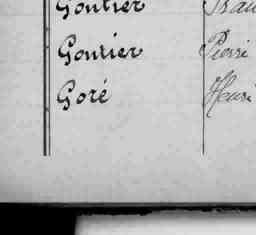 Gontier
Gontier Pierre
Goré Henri